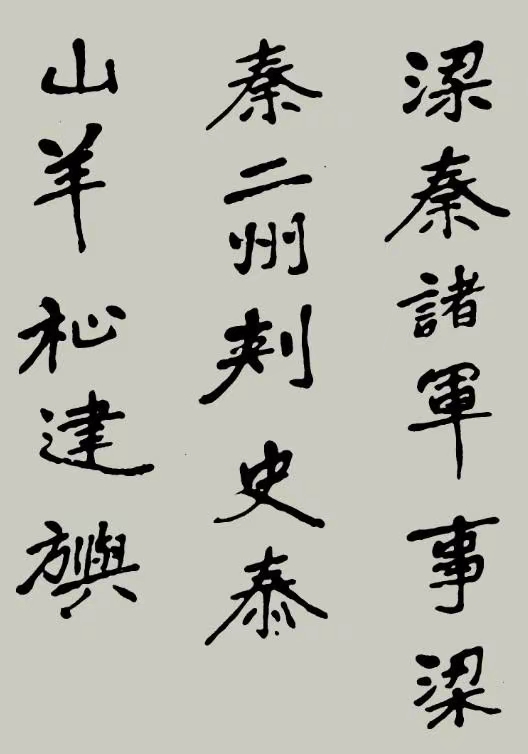 梁秦諸軍事梁
秦二州刺史泰
山羊祉建旟